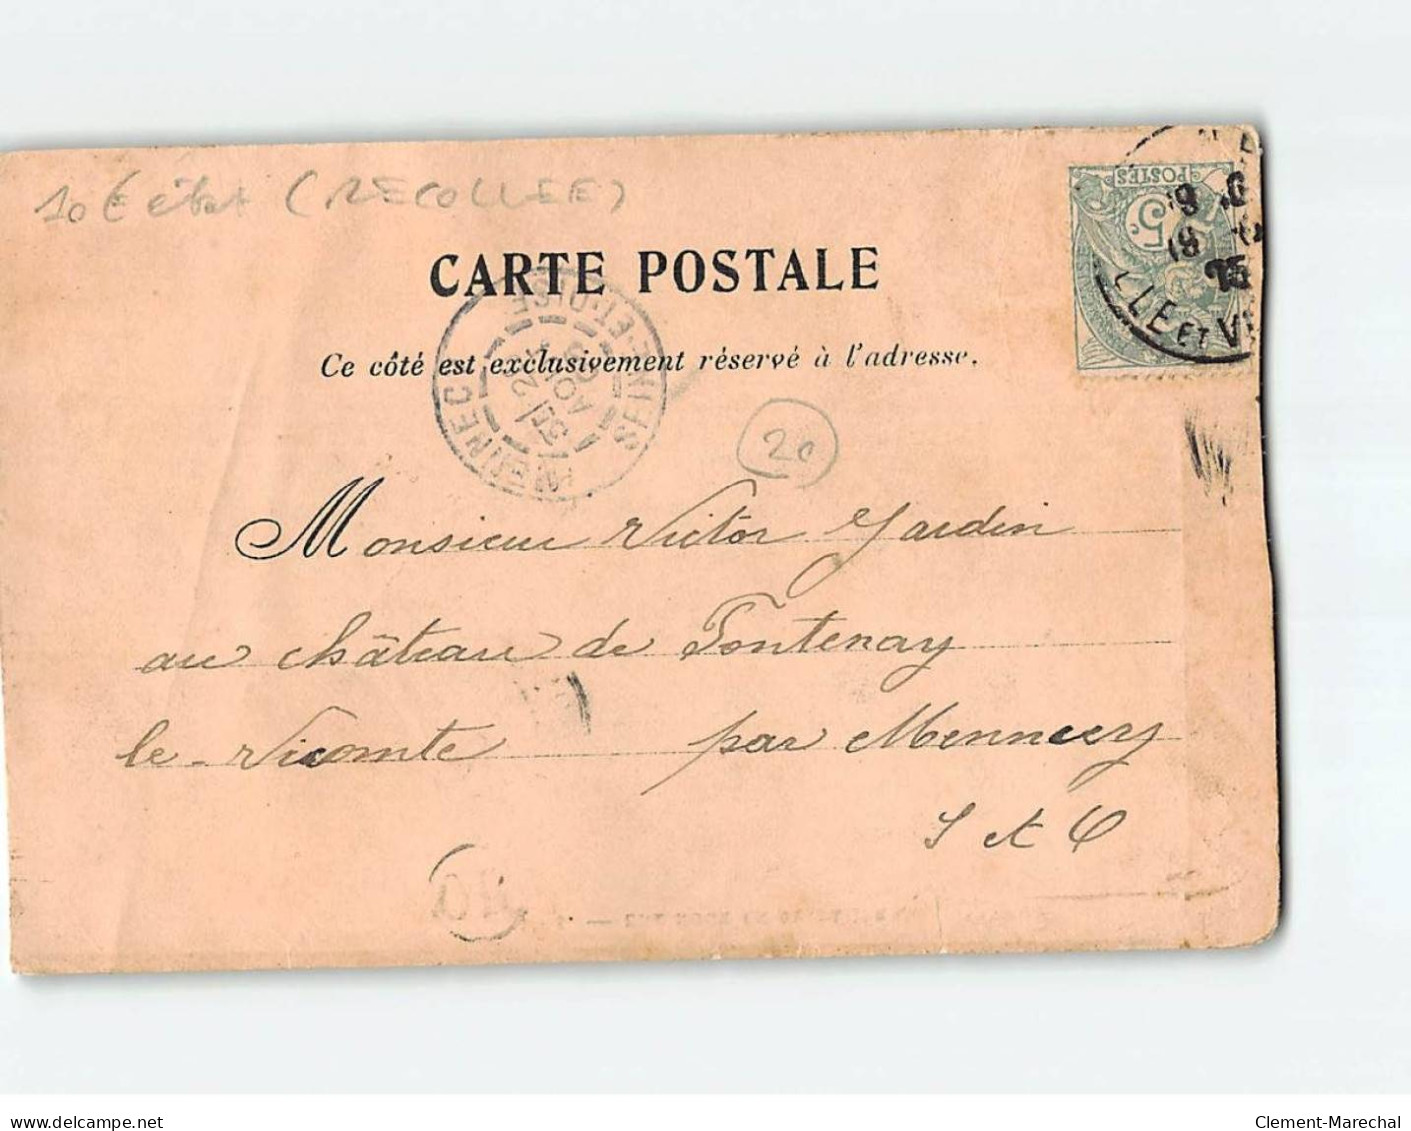 10 € état (RECOLLEE)
CARTE POSTALE
Ce côté est exclusivement réservé à l'adresse.
POSTES
5
SEINE-ET-OISE
LLE ET V
20
Monsieur Victor Jardin
au château de Fontenay
le Vicomte par Mennecy
S et O
www.delcampe.net
Clement-Marechal